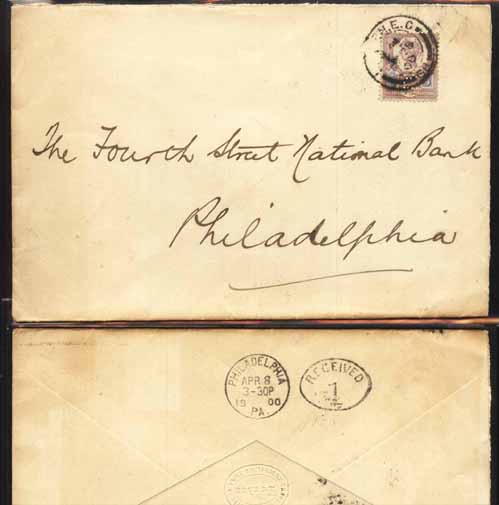 N.E.C.
The Fourth Street National Bank
Philadelphia
PHILADELPHIA
APR 8
3-30P
19 00
PA.
RECEIVED
1